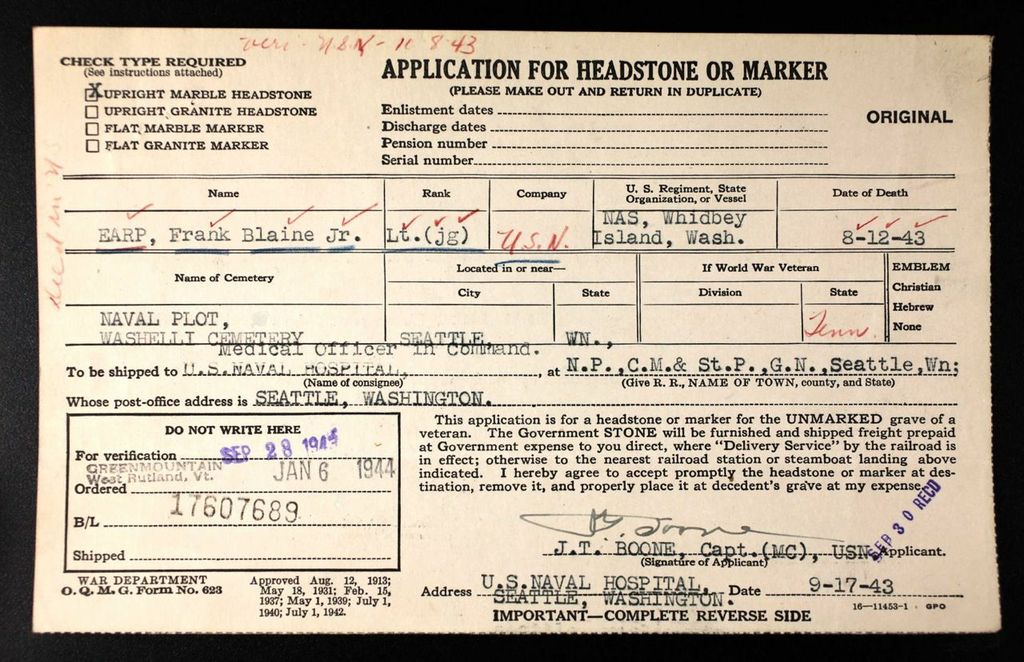 Veri - USN - 11 8 43
CHECK TYPE REQUIRED
(See instructions attached)
X UPRIGHT MARBLE HEADSTONE
UPRIGHT GRANITE HEADSTONE
FLAT MARBLE MARKER
FLAT GRANITE MARKER
APPLICATION FOR HEADSTONE OR MARKER
(PLEASE MAKE OUT AND RETURN IN DUPLICATE)
Enlistment dates
Discharge dates
Pension number
Serial number
ORIGINAL
Name Rank Company U. S. Regiment, State Organization, or Vessel Date of Death
EARP, Frank Blaine Jr. Lt.(jg) U.S.N. NAS, Whidbey Island, Wash. 8-12-43
Name of Cemetery
Located in or near—
City State
If World War Veteran
Division State
EMBLEM
Christian
Hebrew
None
Tenn.
NAVAL PLOT,
WASHELLI CEMETERY SEATTLE WN.,
Medical Officer in Command.
To be shipped to U.S.NAVAL HOSPITAL, at N.P.,C.M.& St.P.,G.N.,Seattle,Wn;
(Name of consignee) (Give R. R., NAME OF TOWN, county, and State)
Whose post-office address is SEATTLE, WASHINGTON.
DO NOT WRITE HERE
For verification SEP 28 1944
GREENMOUNTAIN JAN 6 1944
West Rutland, Vt.
Ordered
17607689
B/L
Shipped
This application is for a headstone or marker for the UNMARKED grave of a
veteran. The Government STONE will be furnished and shipped freight prepaid
at Government expense to you direct, where "Delivery Service" by the railroad is
in effect; otherwise to the nearest railroad station or steamboat landing above
indicated. I hereby agree to accept promptly the headstone or marker at des-
tination, remove it, and properly place it at decedent's grave at my expense.
SEP 30 RECD
J.T. Boone
J.T. BOONE, Capt.(MC), USN Applicant.
(Signature of Applicant)
WAR DEPARTMENT
O. Q. M. G. Form No. 623
Approved Aug. 12, 1913;
May 18, 1931; Feb. 15,
1937; May 1, 1939; July 1,
1940; July 1, 1942.
Address U.S.NAVAL HOSPITAL, Date 9-17-43
SEATTLE, WASHINGTON.
16—11453-1 GPO
IMPORTANT—COMPLETE REVERSE SIDE